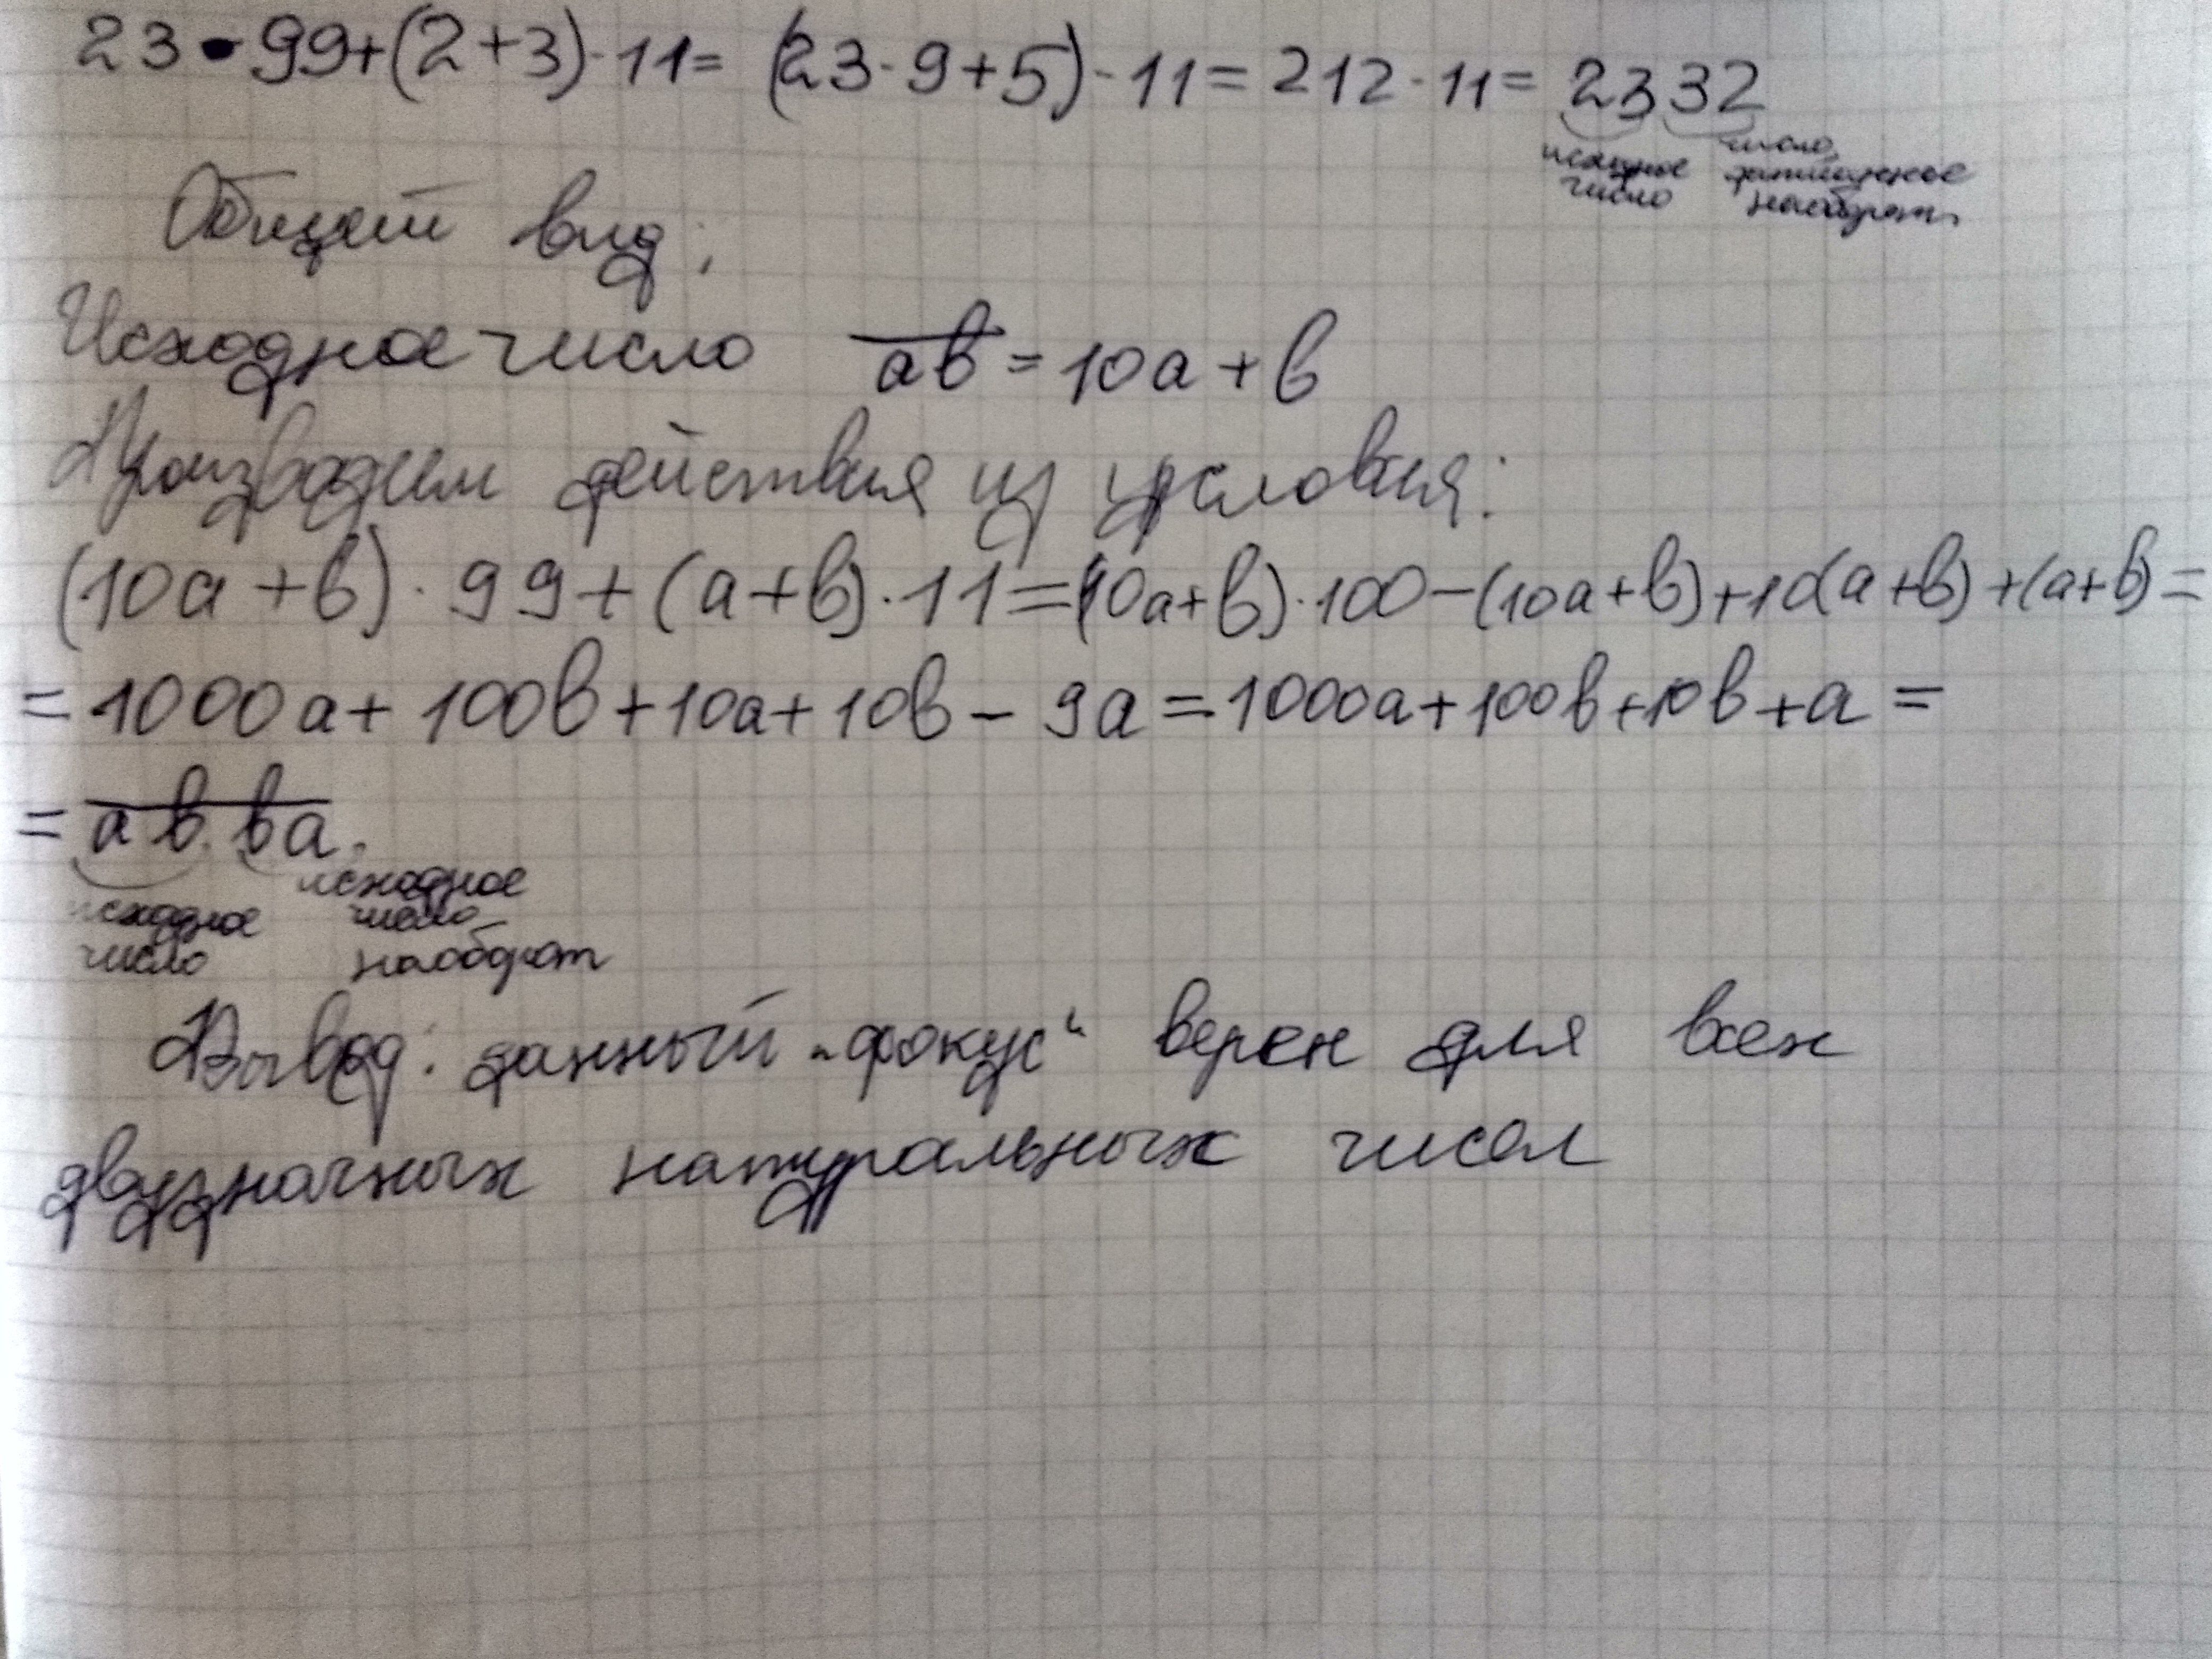 23 • 99+(2+3)·11= (23·9+5)·11=212·11= 2332
исходное число
число, записанное наоборот
Общий вид:
Исходное число ab = 10a + b
Производим действия из условия:
(10a+b)·99+(a+b)·11=(10a+b)·100-(10a+b)+10(a+b)+(a+b)=
=1000a+100b+10a+10b-9a=1000a+100b+10b+a=
=abba.
исходное число
исходное число наоборот
Вывод: данный „фокус“ верен для всех
двузначных натуральных чисел